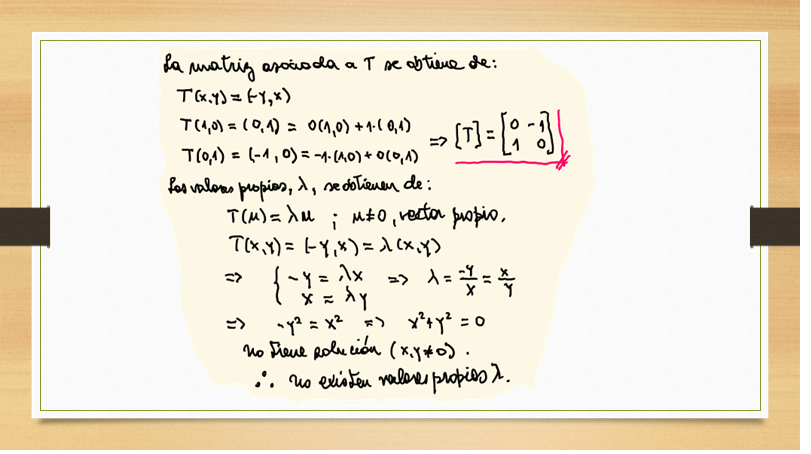 La matriz asociada a T se obtiene de:
T(x,y) = (-y,x)
T(1,0) = (0,1) = 0(1,0) + 1·(0,1)
T(0,1) = (-1,0) = -1·(1,0) + 0(0,1)
=> [T] = [0 -1
1 0]
Los valores propios, λ, se obtienen de:
T(u) = λu ; u≠0, vector propio.
T(x,y) = (-y,x) = λ(x,y)
=> { -y = λx => λ = -y/x = x/y
x = λy
=> -y² = x² => x²+y² = 0
No tiene solución (x,y≠0).
∴ No existen valores propios λ.